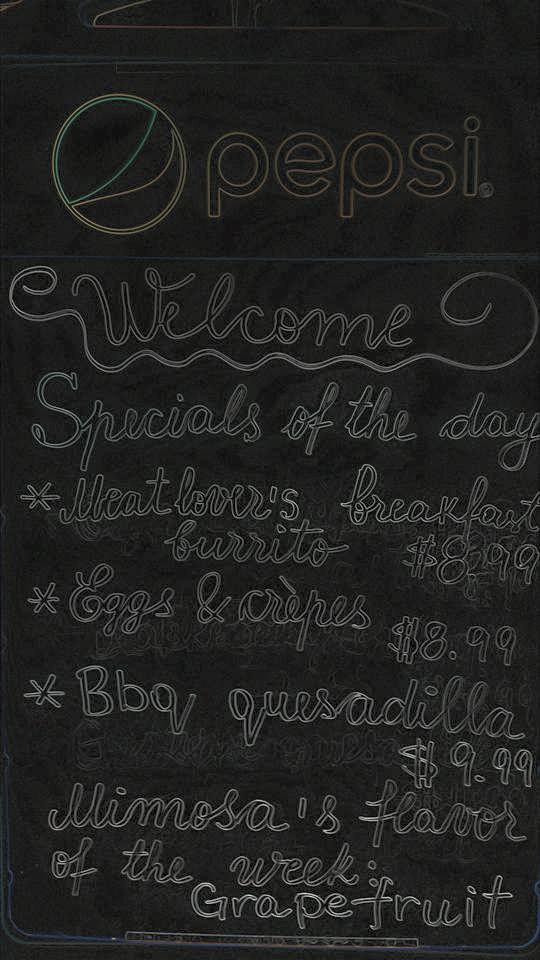 pepsi
Welcome
Specials of the day
*Meat lover's breakfast
burrito $8.99
*Eggs & crèpes
$8.99
*Bbq quesadilla
$9.99
Mimosa's flavor
of the week:
Grapefruit